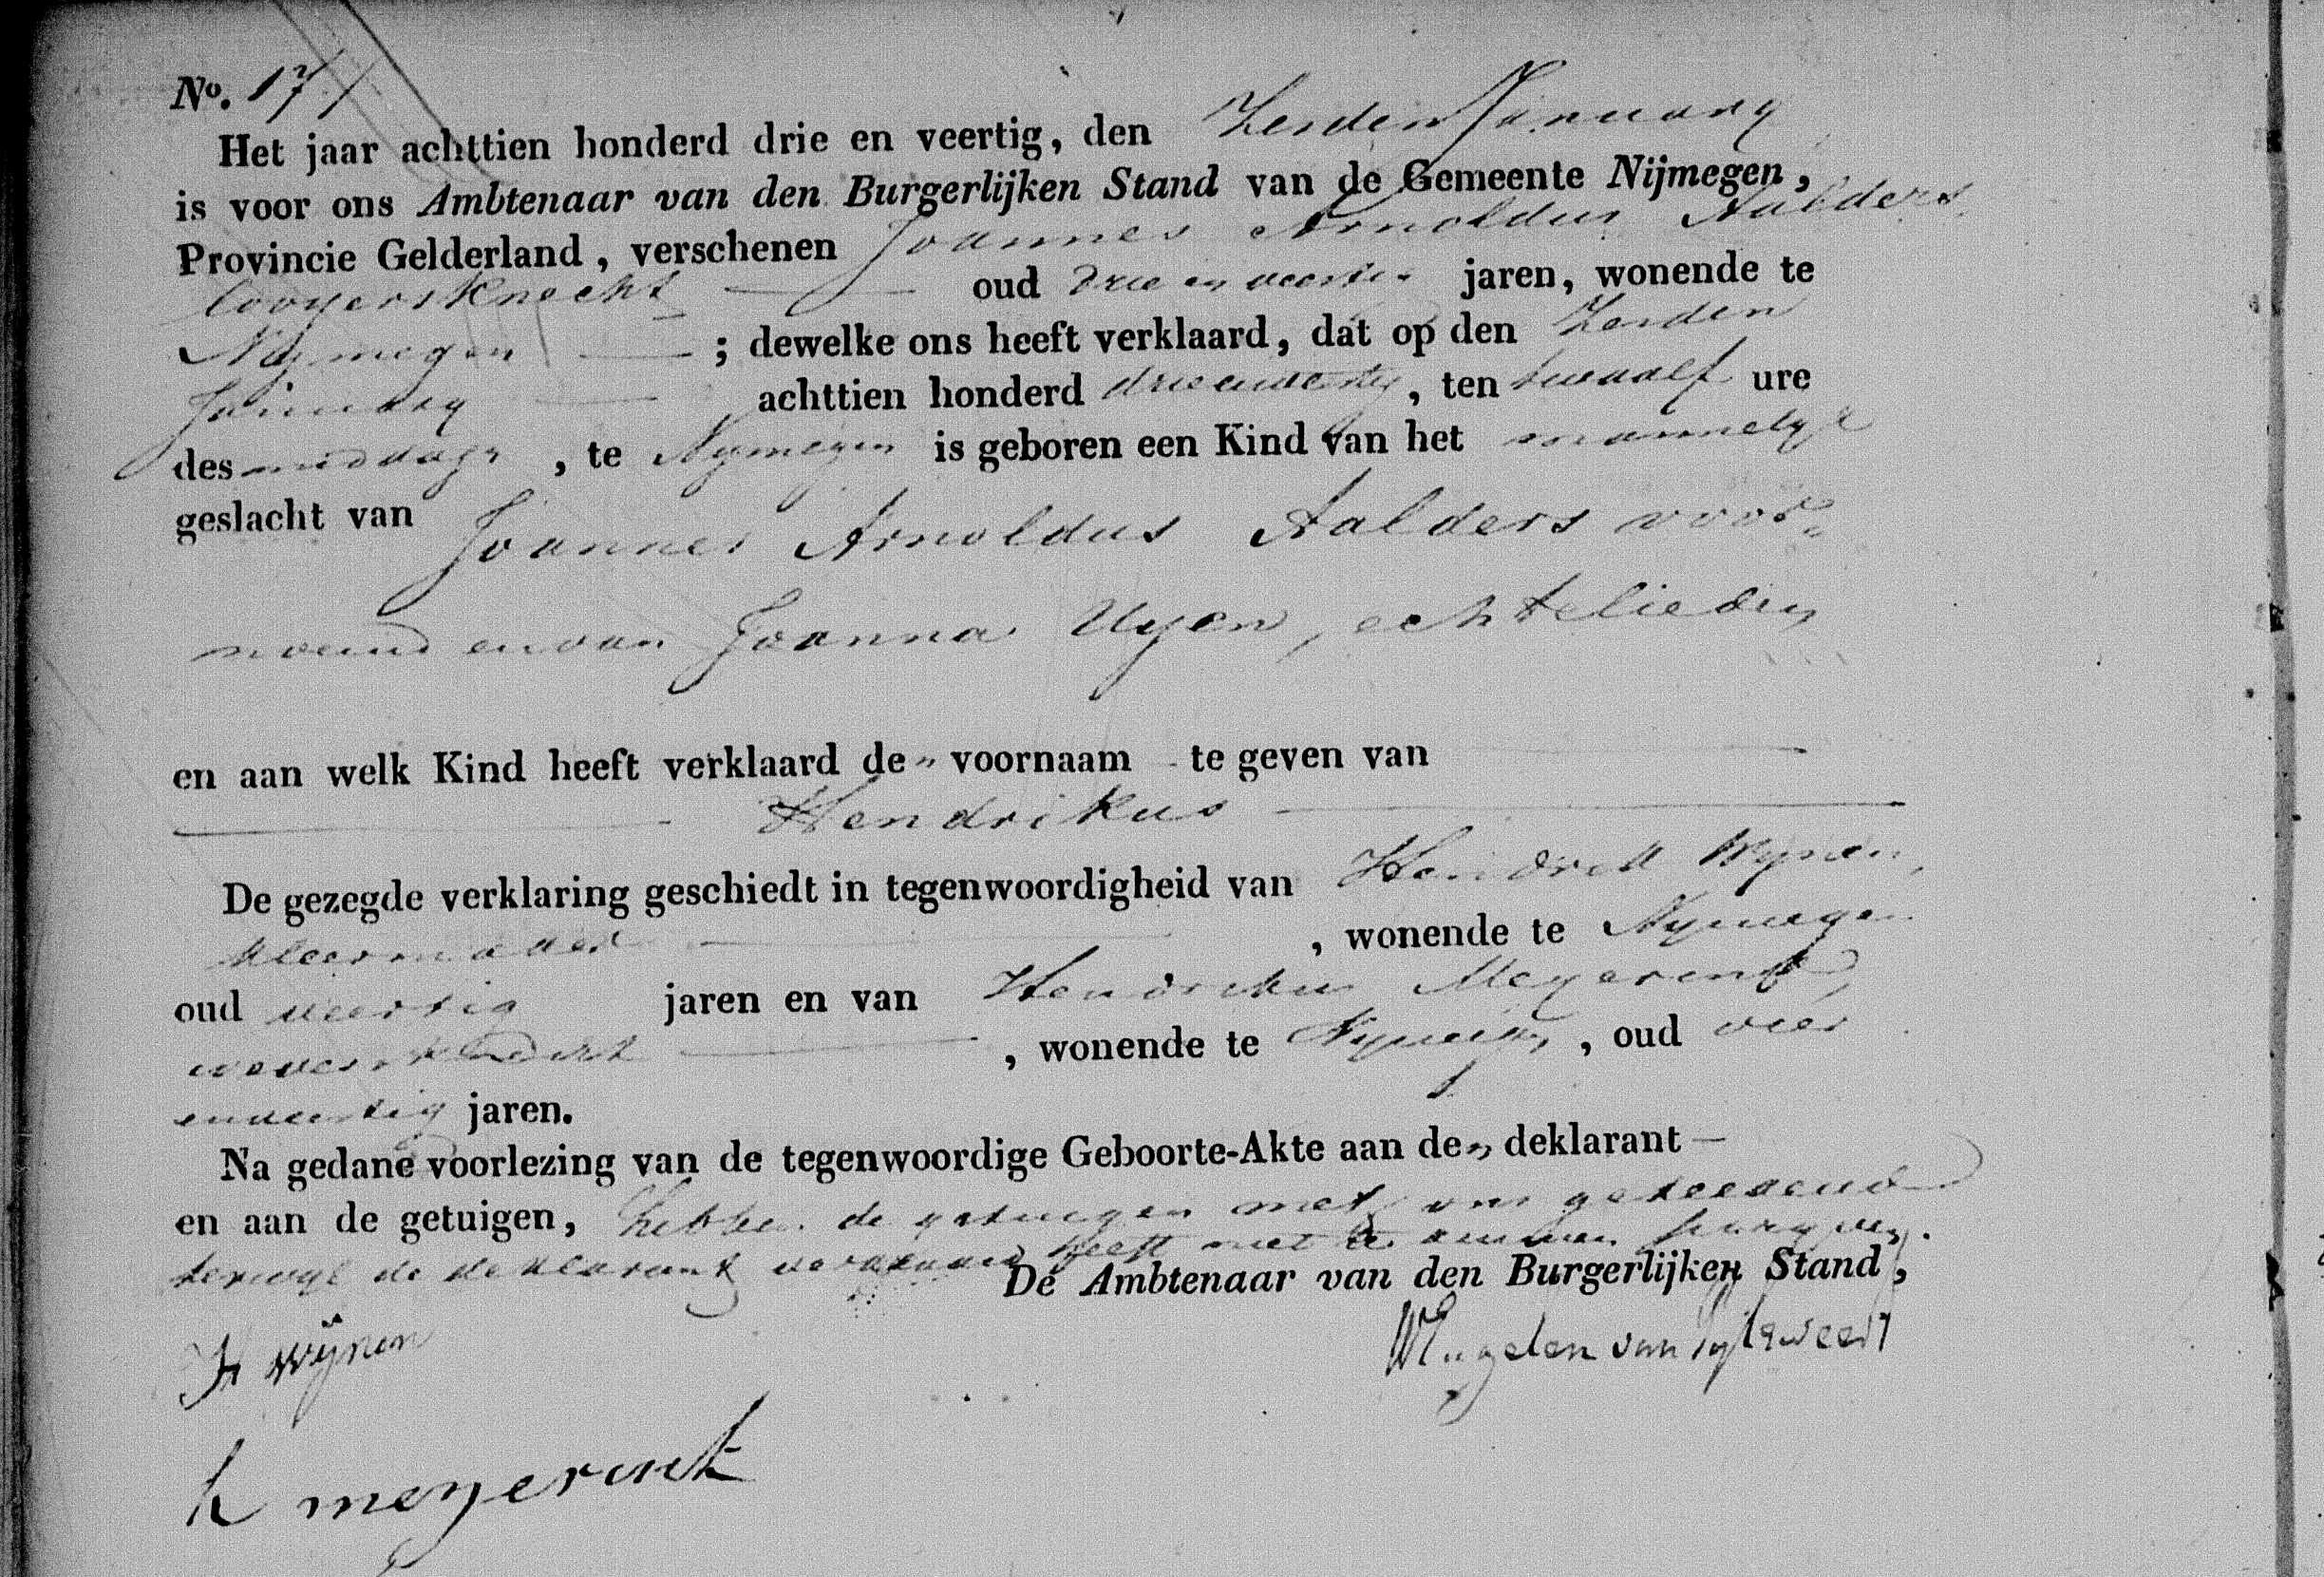 No. 17
Het jaar achttien honderd drie en veertig, den Zesden Januarij
is voor ons Ambtenaar van den Burgerlijken Stand van de Gemeente Nijmegen,
Provincie Gelderland, verschenen Joannes Arnoldus Aalders
looyersknecht — oud drie en veertig jaren, wonende te
Nymegen — ; dewelke ons heeft verklaard, dat op den Zesden
Januarij — achttien honderd drieenveertig, ten twaalf ure
des middags, te Nymegen is geboren een Kind van het mannelyk
geslacht van Joannes Arnoldus Aalders voor„
noemd en van Joanna Uyen, echtelieden
en aan welk Kind heeft verklaard den voornaam te geven van —
— Hendrikus —
De gezegde verklaring geschiedt in tegenwoordigheid van Hendrik Wynen,
kleermaker — , wonende te Nymegen
oud veertig jaren en van Hendrikus Meyerink,
weversknecht — , wonende te Nymegen, oud vier
enveertig jaren.
Na gedane voorlezing van de tegenwoordige Geboorte-Akte aan den deklarant —
en aan de getuigen, hebben de getuigen met ons geteekend
terwyl de deklarant verklaard heeft niet te kunnen schryven.
De Ambtenaar van den Burgerlijken Stand,
H Wijnen
h meyerink